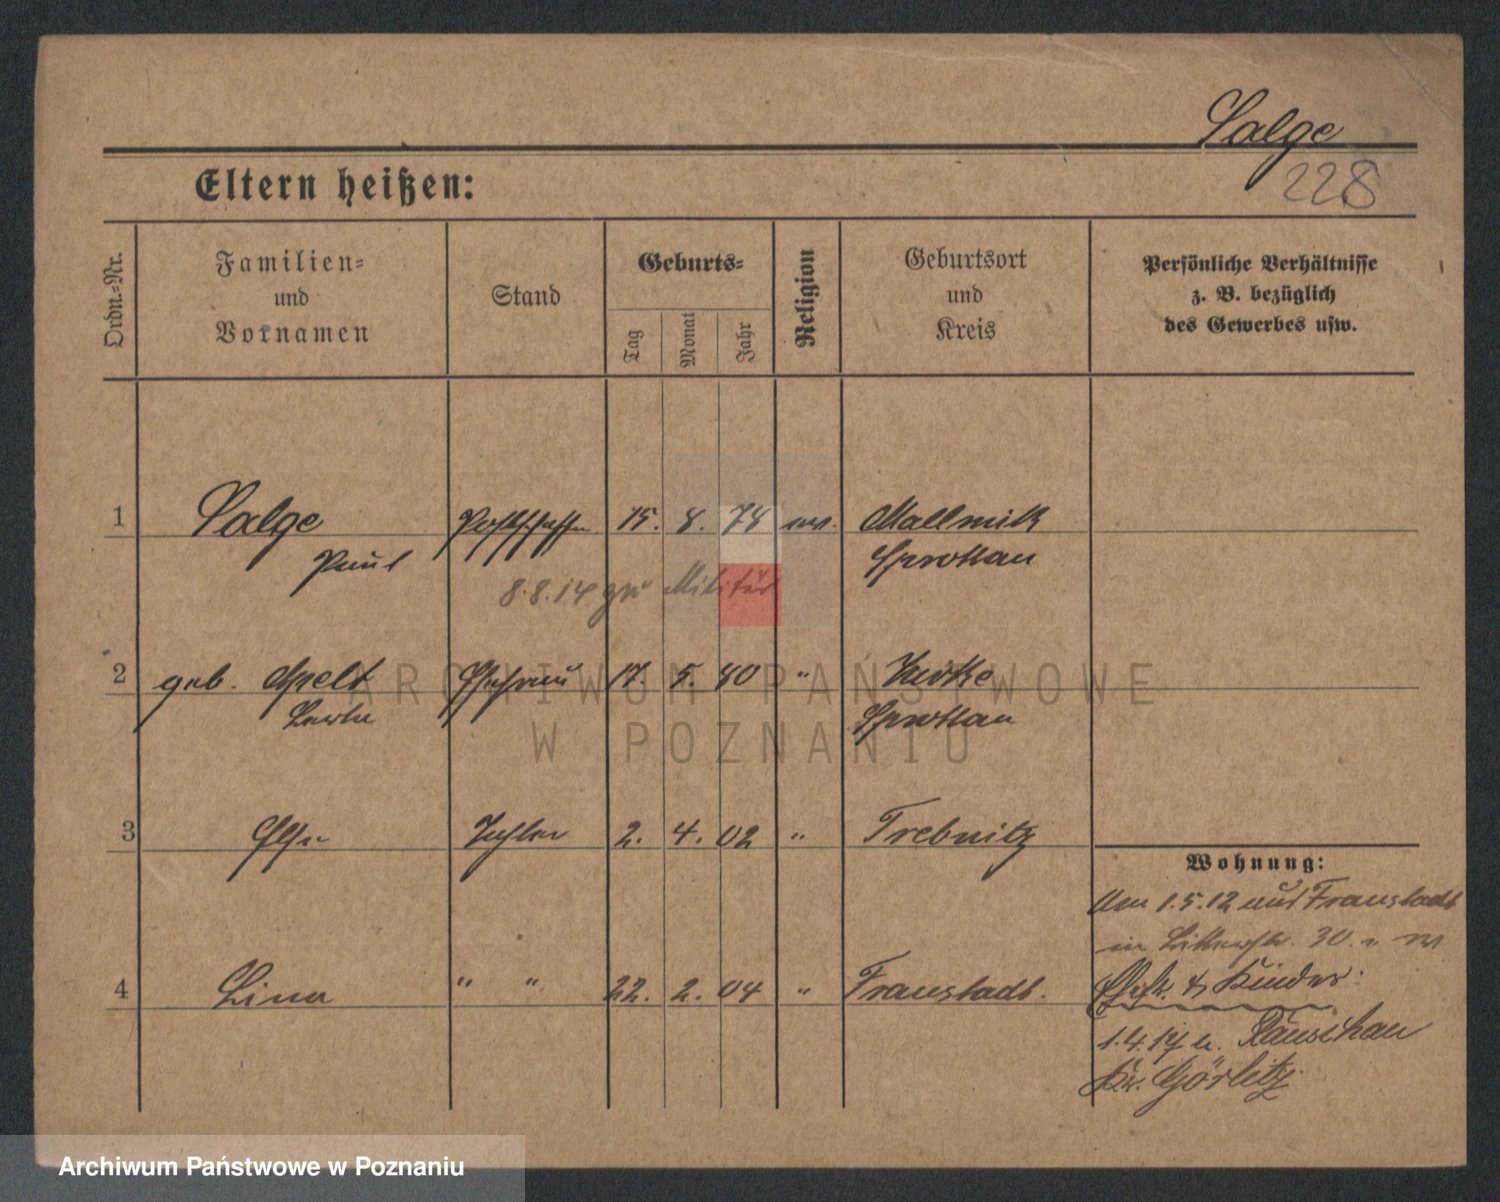 Salge
228
Eltern heißen:
Ordn.-Nr.
Familien-
und
Vornamen
Stand
Geburts-
Tag
Monat
Jahr
Religion
Geburtsort
und
Kreis
Persönliche Verhältnisse
z. B. bezüglich
des Gewerbes usw.
1 Salge 15. 8. 78 ev. Mallmitz
Paul Sprottau
8.8.14 zu Militär
2 geb. Apelt Ehefrau 17. 5. 80 "
Sprottau
3 Else Tochter 2. 4. 02 " Trebnitz
4 Lina " " 22. 2. 04 " Fraustadt.
Wohnung:
Am 1.5.12 aus Fraustadt
in 30.
& Kinder:
1.4.14 n. Rauschau
Kr. Görlitz
ARCHIWUM PAŃSTWOWE
W POZNANIU
Archiwum Państwowe w Poznaniu